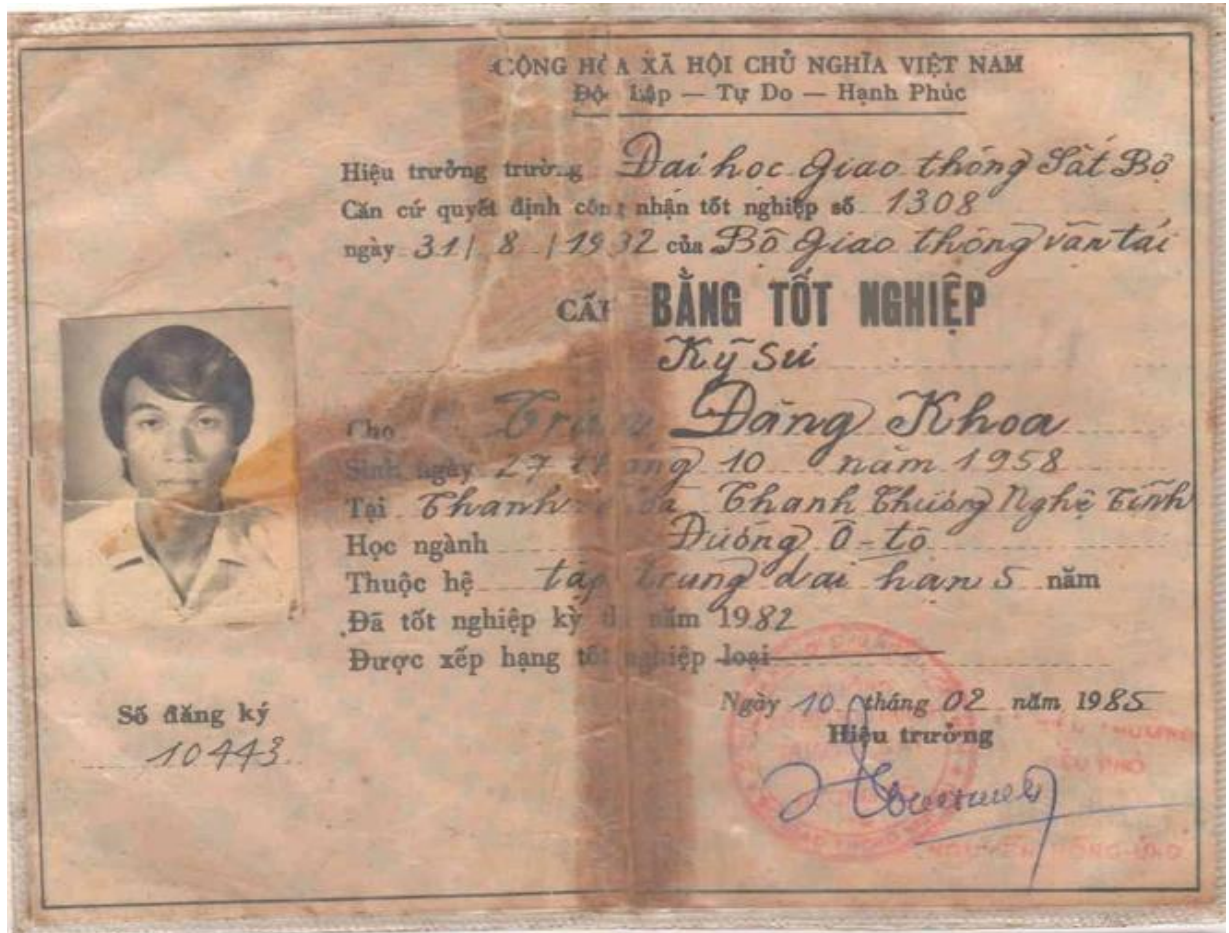 CỘNG HÒA XÃ HỘI CHỦ NGHĨA VIỆT NAM
Độc Lập — Tự Do — Hạnh Phúc
Hiệu trưởng trường Đại học Giao thông Sắt Bộ
Căn cứ quyết định công nhận tốt nghiệp số 1308
ngày 31/ 8 /1982 của Bộ Giao thông vận tải
CẤP BẰNG TỐT NGHIỆP
Kỹ sư
Cho Trần Đăng Khoa
Sinh ngày 27 tháng 10 năm 1958
Tại Thanh Thanh Chương Nghệ Tĩnh
Học ngành Đường Ô-tô
Thuộc hệ tập trung dài hạn 5 năm
Đã tốt nghiệp kỳ thi năm 1982
Được xếp hạng tốt nghiệp loại
Số đăng ký
10443
Ngày 10 tháng 02 năm 1985
Hiệu trưởng